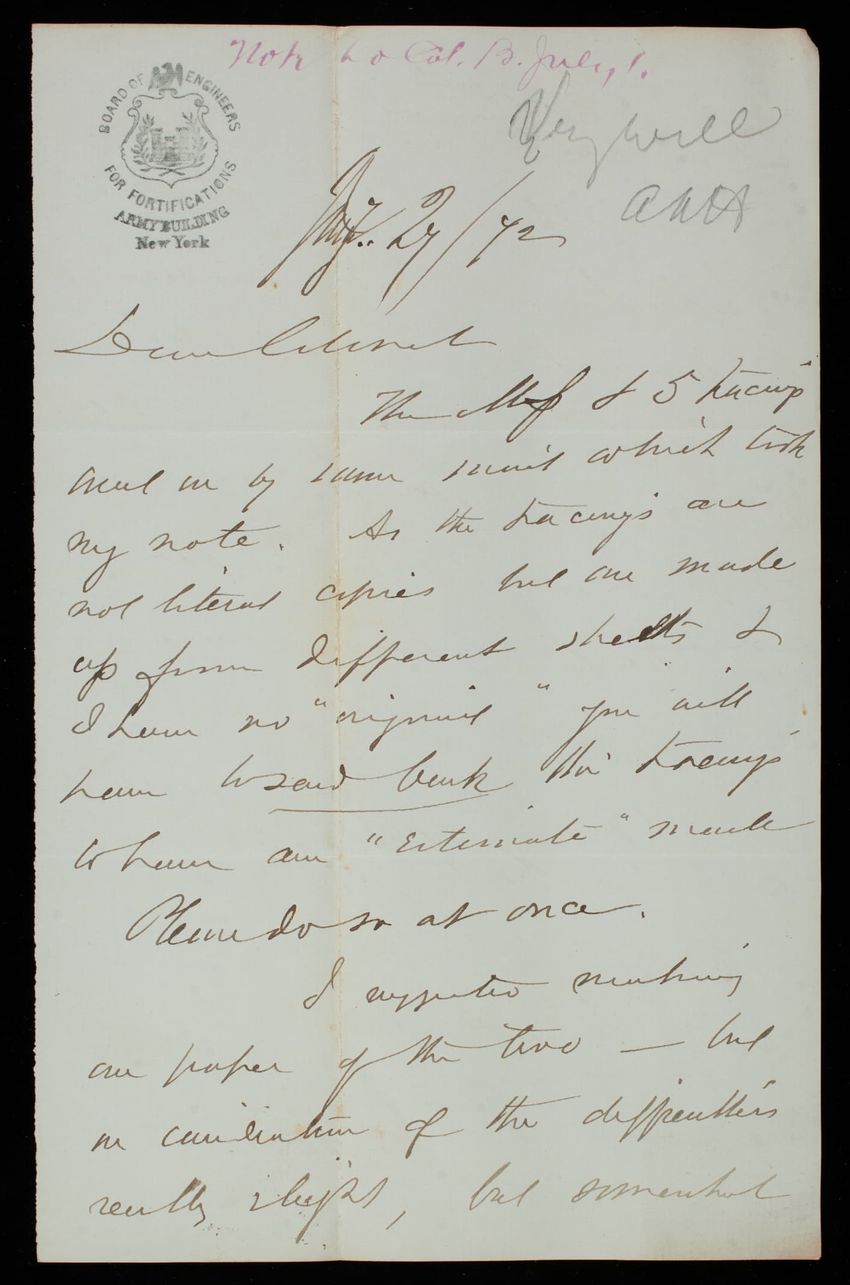 Note to Col. B. July 1.
BOARD OF ENGINEERS
FOR FORTIFICATIONS
ARMY BUILDING
New York
Very well
AAH
27/72
Dear Colonel
The Mss & 5 tracings
went on by same mail which took
my note. As the tracings are
not literal copies but are made
up from different sheets &
I have no "original" you will
have to send back the tracings
to have an "Estimate" made
Please do so at once.
I suggested making
one paper of the two — but
on consideration of the difficulties
really slight, but somewhat